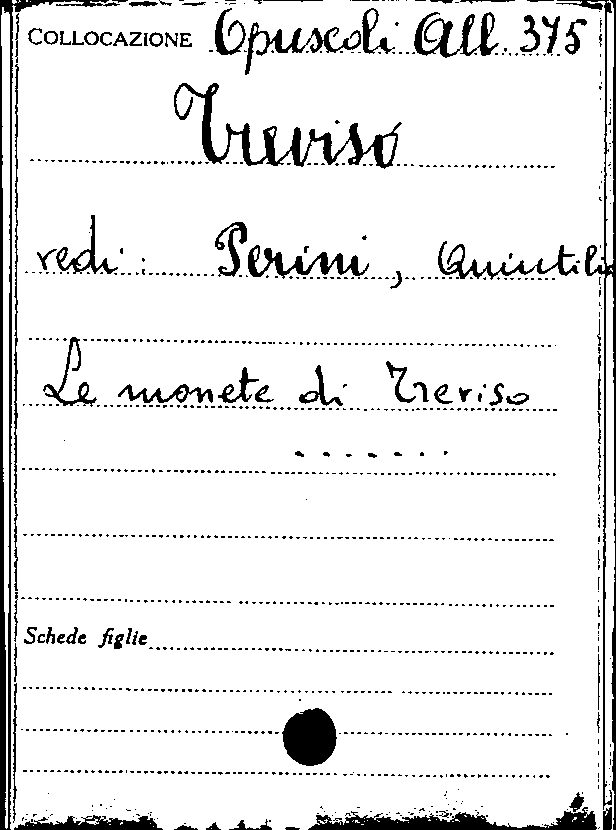 COLLOCAZIONE Opuscoli All. 375
Treviso
vedi: Perini, Quintilio
Le monete di Treviso
.......
Schede figlie